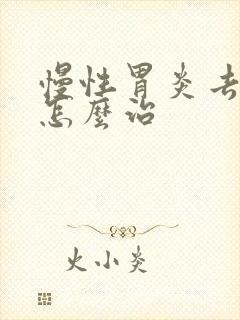 慢性胃炎
怎麼治
火小炎